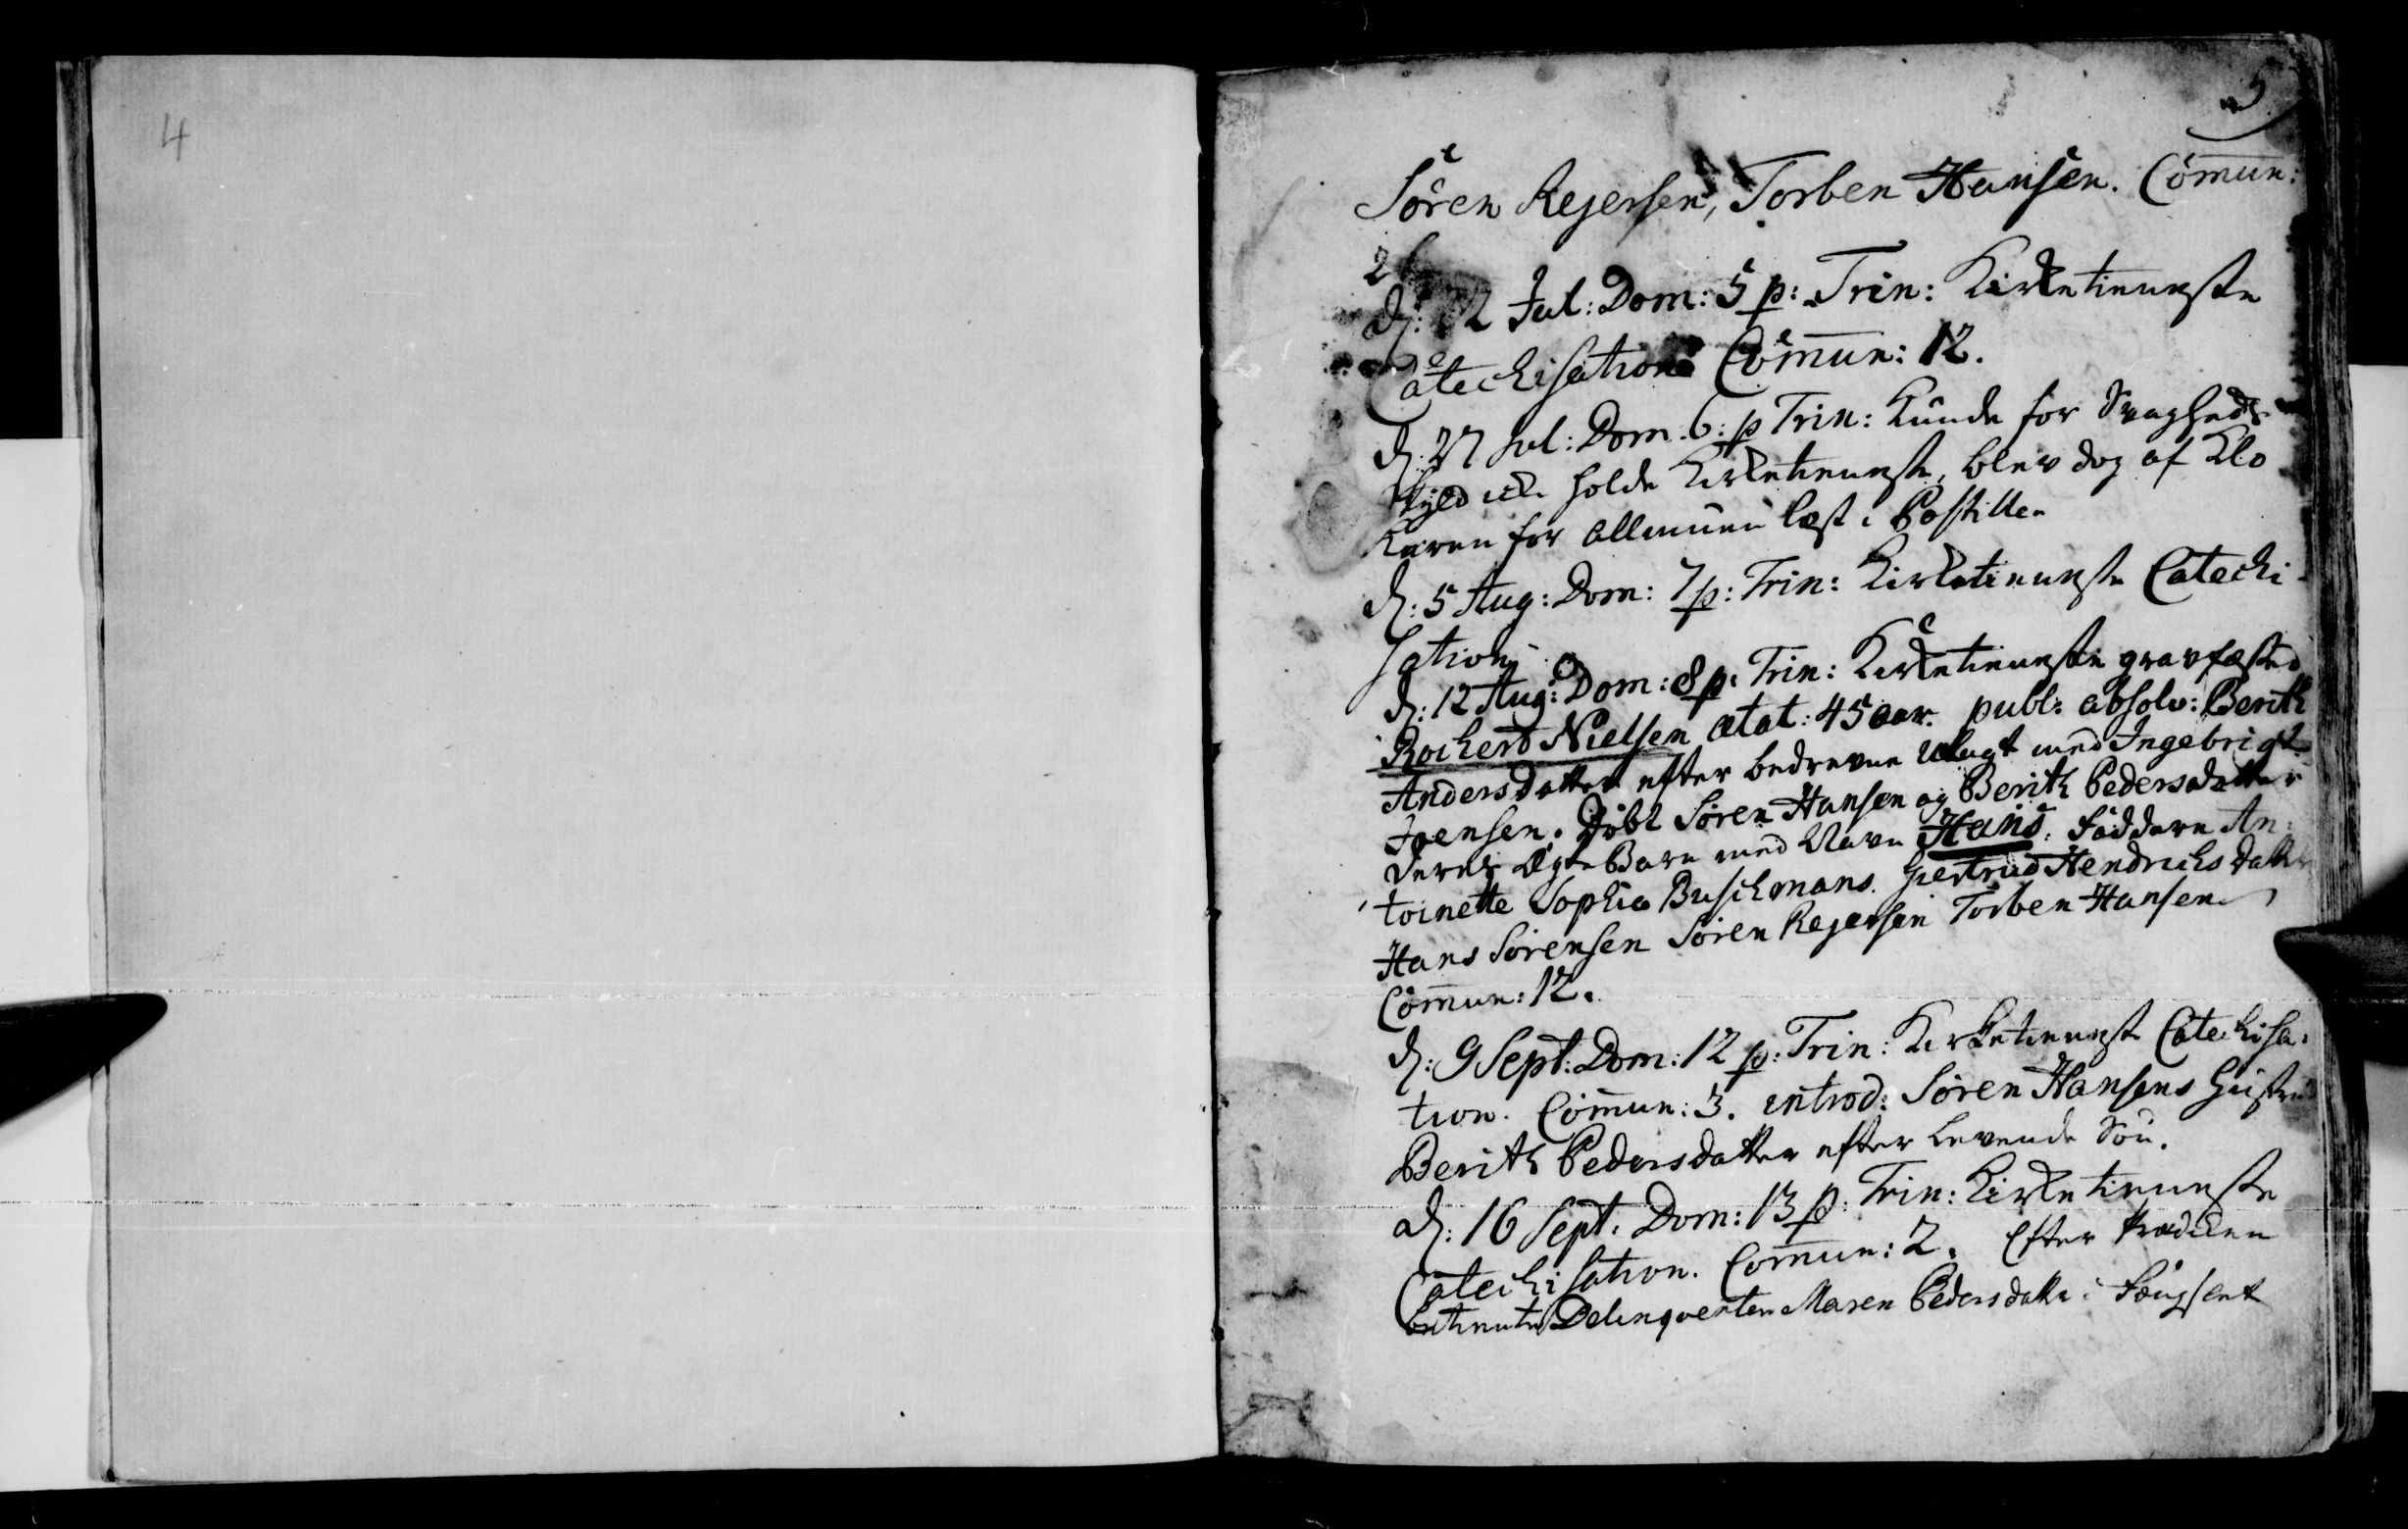 4
5
Sören Rejersen, Torben Hansen. Com̄un:
26
d: 22 Jul: Dom: 5 p: Trin: Kirketieneste
Catechisation Com̄un: 12.
d. 27 Jul: Dom. 6: p Trin: Kunde for Svagheds
skyld icke holde Kirketieneste, blev dog af Klo
keren for Allmuen læst i Postillen
d: 5 Aug: Dom: 7 p: Trin: Kirketieneste Catechi-
sation
d: 12 Aug: Dom: 8 p: Trin: Kirketieneste gravfæsted
Rochert Nielsen ætat: 45 aar. publ: absolv: Berith
Andersdatter efter bedreven utugt med Ingebrigt
Joensen. Döbt Sören Hansen og Berith Pedersdatter
deres Ægte Barn med Navn Hans. Faddere An:
toinette Sophia Buschmans. Giertrud Hendrichs datter
Hans Sörensen Sören Rejersen Torben Hansen
Com̄un: 12.
d: 9 Sept: Dom: 12 p: Trin: Kirketieneste Catechisa:
tion. Com̄un: 3. introd: Sören Hansens Hustru
Berith Pedersdatter efter levende Sön.
d: 16 Sept. Dom: 13 p: Trin: Kirketieneste
Catechisation. Com̄un: 2. Efter Prædiken
betiente Delinqventen Maren Pedersdatter i Fængslet